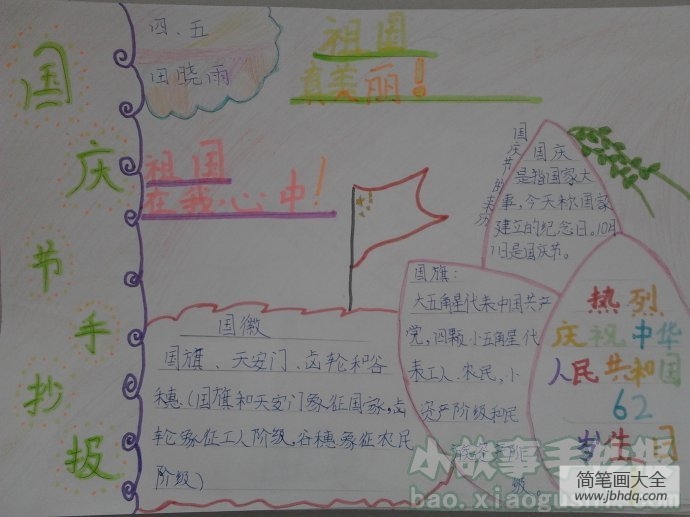 国
庆
节
手
抄
报
四、五
田晓雨
祖国
真美丽！
祖国
在我心中！
国徽
国旗、天安门、齿轮和谷
穗（国旗和天安门象征国家，齿
轮象征工人阶级，谷穗象征农民
阶级）
国旗：
大五角星代表中国共产
党，四颗小五角星代
表工人、农民、小
资产阶级和民
级
国庆节的来历
国庆
是指国家大
事，今天称国家
建立的纪念日。10月
1日是国庆节。
热烈
庆祝中华
人民共和国
62
岁生日
小故事手抄报
bao.xiaogushi.com
简笔画大全
www.jbhdq.com